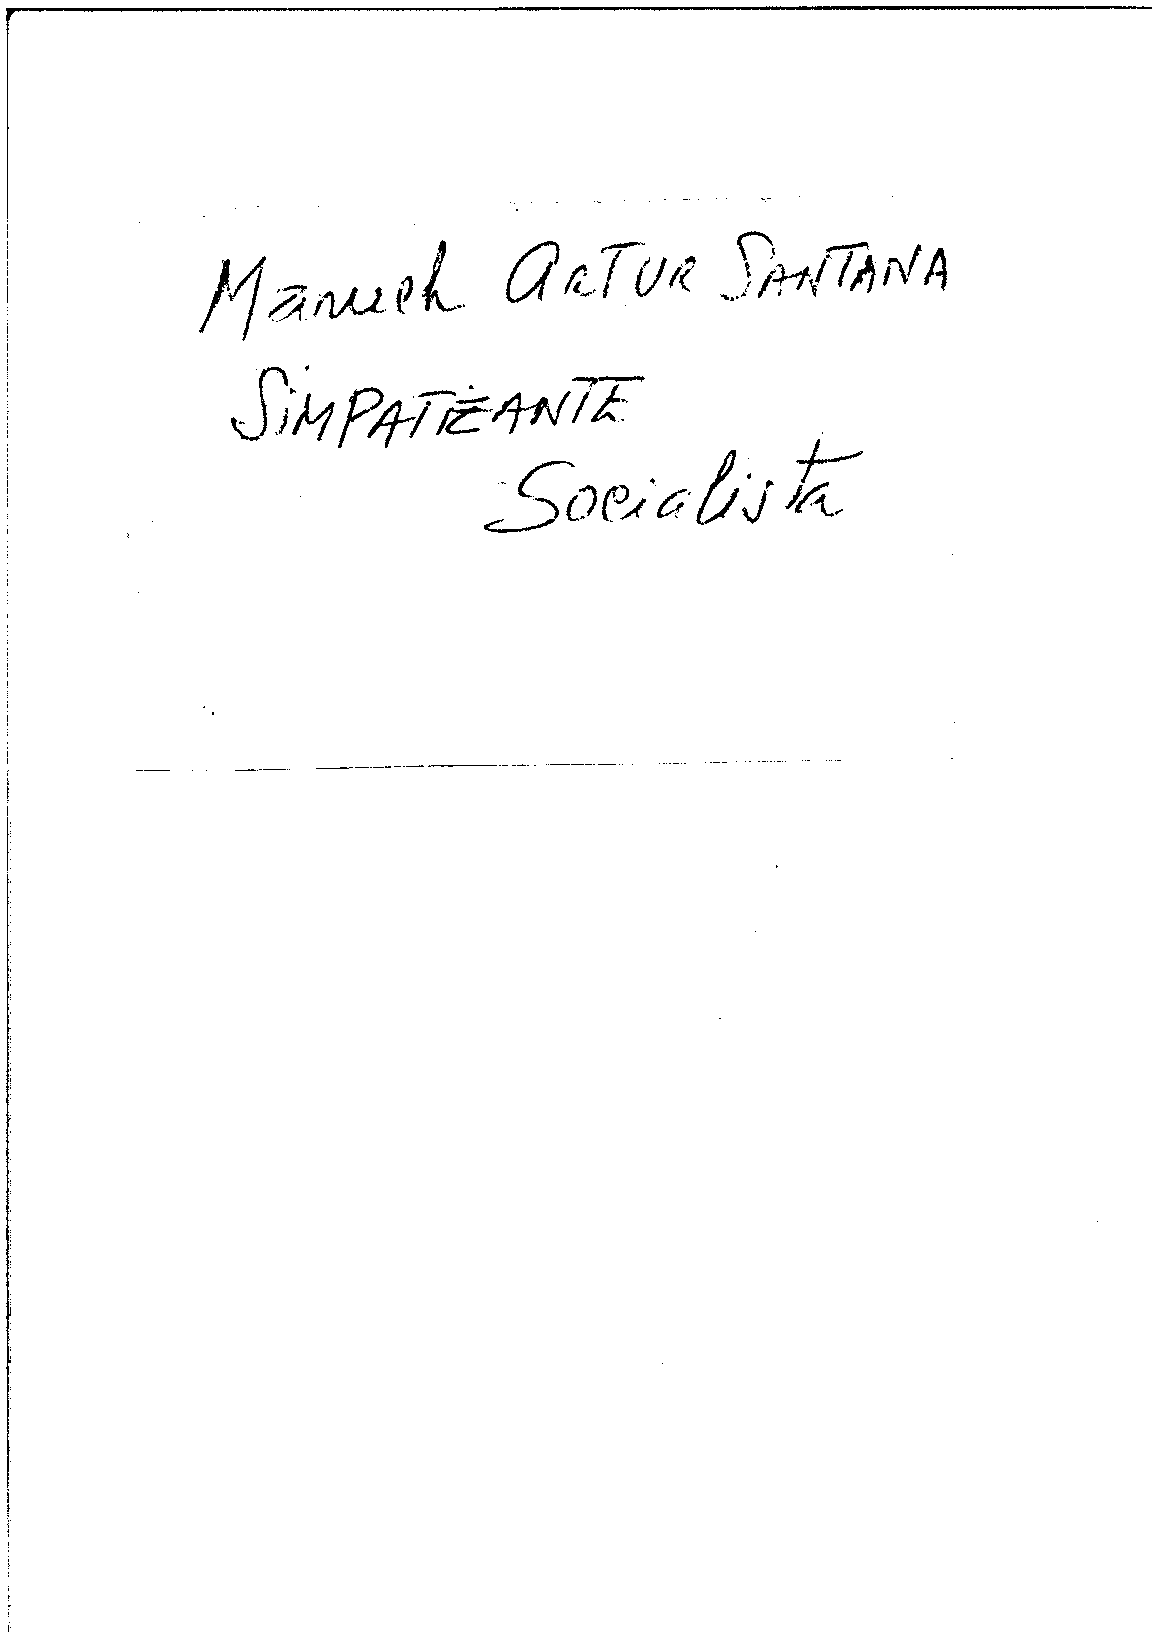 Manuel ARTUR SANTANA
SIMPATIZANTE
Socialista